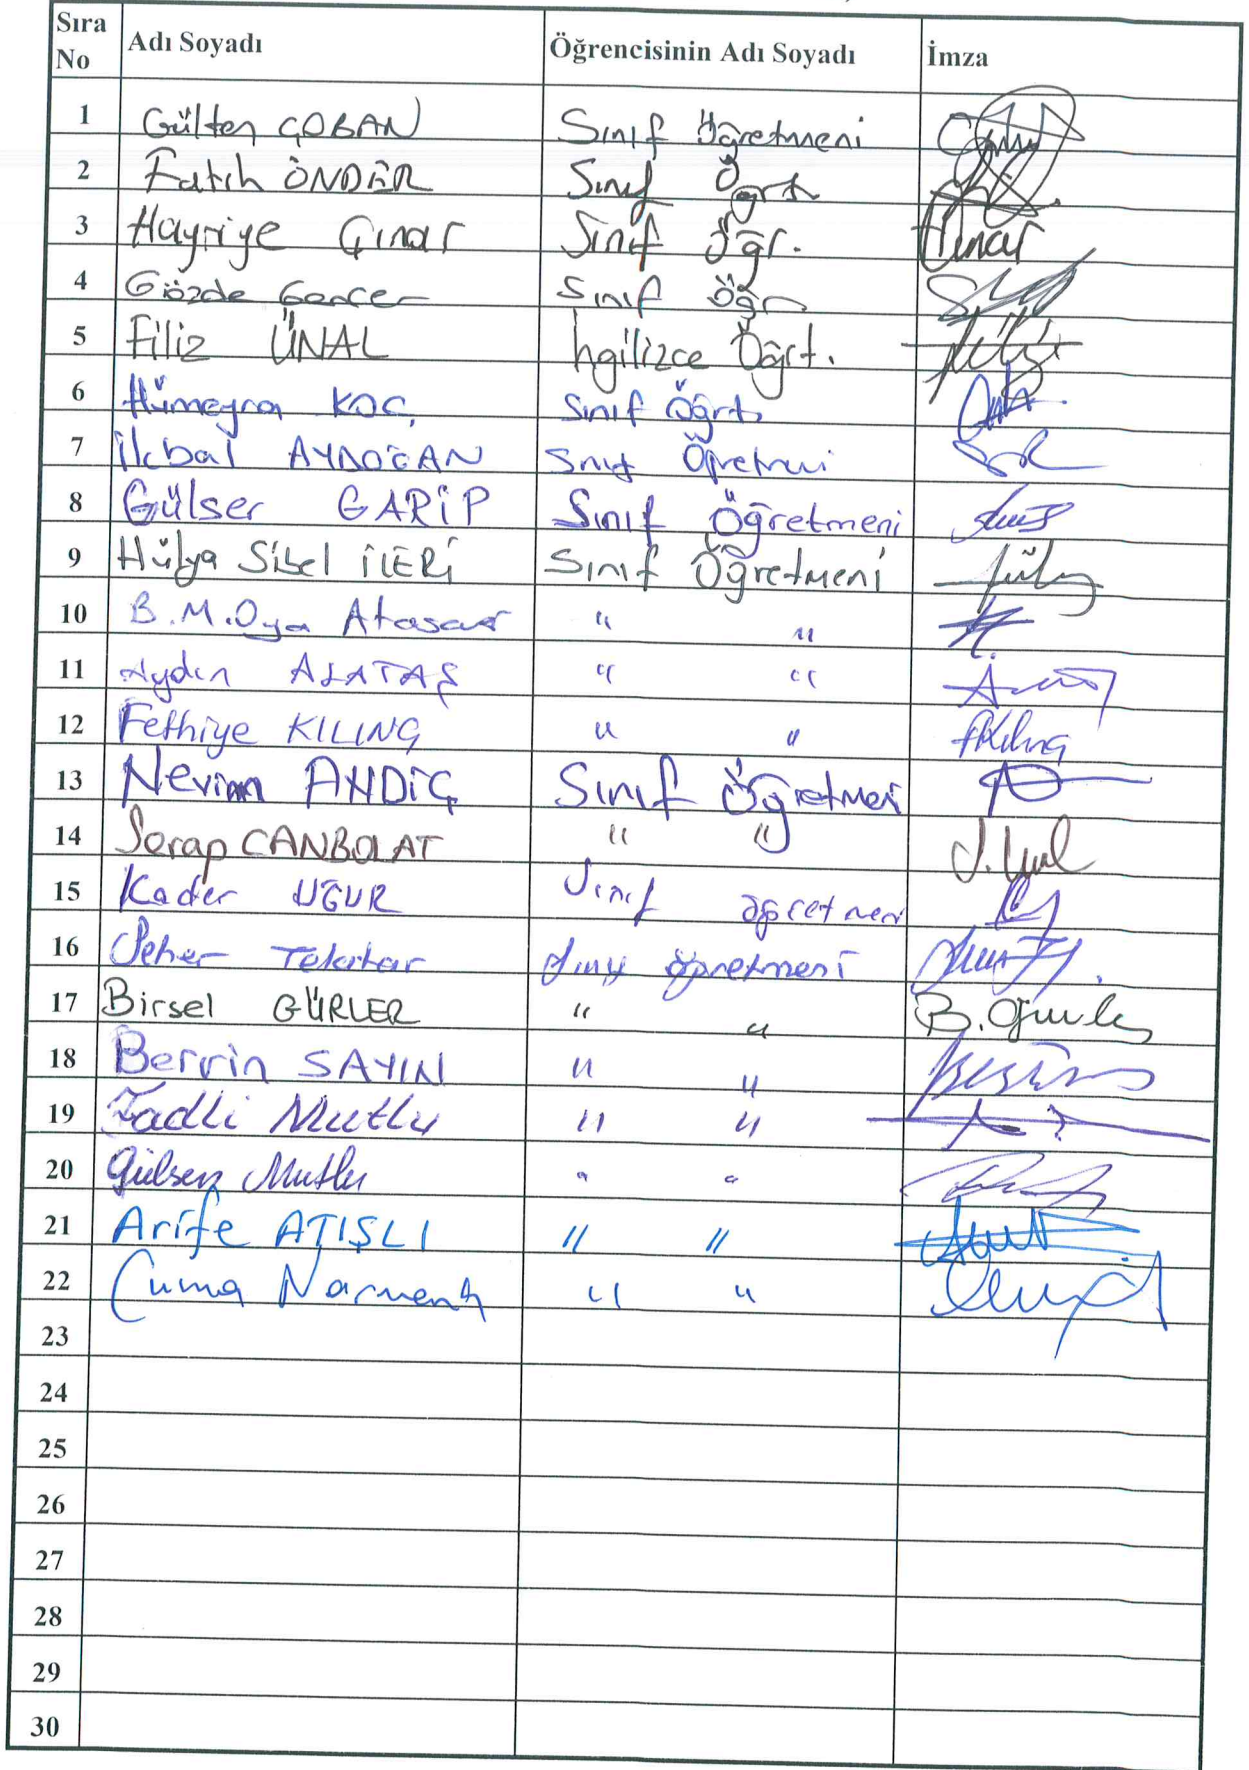 Sıra No Adı Soyadı Öğrencisinin Adı Soyadı İmza
1 Gülten ÇOBAN Sınıf Öğretmeni
2 Fatih ÖNDER Sınıf Öğrt
3 Hayriye Çınar Sınıf Öğr.
4 Gözde Sınıf Öğr
5 Filiz ÜNAL İngilizce Öğrt.
6 Hümeyra KOÇ Sınıf Öğrt
7 İkbal AYDOĞAN Sınıf Öğretmeni
8 Gülser GARİP Sınıf Öğretmeni
9 Hülya Sibel İLERİ Sınıf Öğretmeni
10 B.M.Oya " "
11 Aydın ALATAŞ " "
12 Fethiye KILINÇ " " FKılınç
13 Sınıf Öğretmeni
14 Serap CANBOLAT " "
15 Kader UĞUR Sınıf öğretmeni
16 Seher Sınıf öğretmeni
17 Birsel GÜRLER " " B. Gürler
18 Berrin SAYIN " "
19 Fadli Mutlu " "
20 Gülsen Mutlu " "
21 Arife ATIŞLI " "
22 Cuma " "
23
24
25
26
27
28
29
30